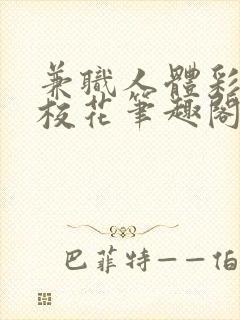 兼職人體彩
校花筆趣閣
巴菲特——伯